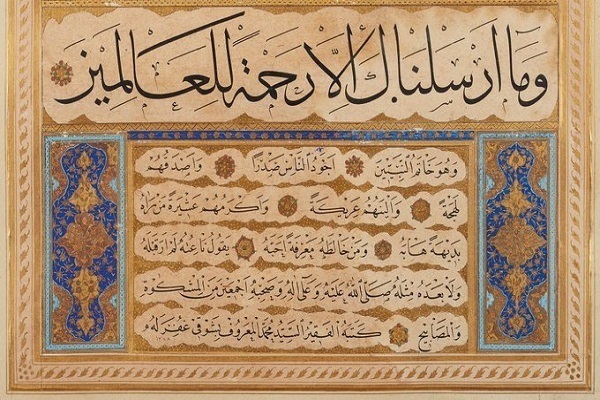 وَمَا أَرْسَلْنَاكَ إِلَّا رَحْمَةً لِلْعَالَمِينَ
وَهُوَ خَاتَمُ النَّبِيِّينَ أَجْوَدُ النَّاسِ صَدْرًا وَأَصْدَقُهُمْ
لَهْجَةً وَأَلْيَنُهُمْ عَرِيكَةً وَأَكْرَمُهُمْ عَشِيرَةً مَنْ رَآهُ
بَدِيهَةً هَابَهُ وَمَنْ خَالَطَهُ مَعْرِفَةً أَحَبَّهُ يَقُولُ نَاعِتُهُ لَمْ أَرَ قَبْلَهُ
وَلَا بَعْدَهُ مِثْلَهُ صَلَّى اللهُ عَلَيْهِ وَعَلَى آلِهِ وَصَحْبِهِ أَجْمَعِينَ مِنَ الْمِشْكٰوةِ
وَالْمَصَابِيحِ كَتَبَهُ الْفَقِيرُ السَّيِّدُ مُحَمَّدُ الْمَعْرُوفُ بِشَوْقِي غُفِرَ لَهُ